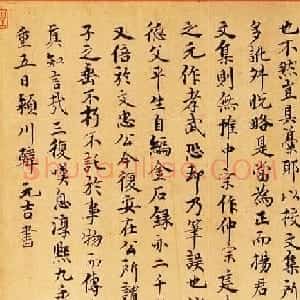 也不然宜具藁耶以校文集所
多訛舛脫略是當為正而楊君
文集則無惟中宗作仲宗建
之元作孝武恐却乃筆誤也
德父平生自編金石錄亦二千
又倍於文忠公今復安在公所謂
子之垂不朽不託於事物而傳
真知言哉三復歎息淳熙九年
重五日潁川韓元吉書